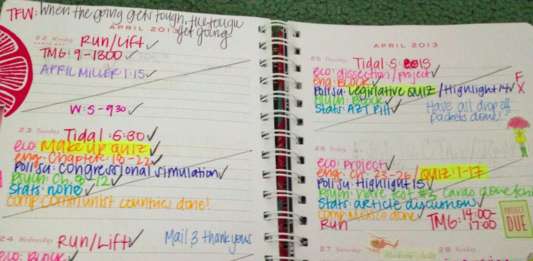 TFW: When the going gets tough, the tough
get going
APRIL 2013
22 Monday
Run/Lift ✓
TMG: 9-1800 ✓
APRIL MILLER 1:15 ✓
W: 5-930 ✓
23 Tuesday
Tidal 6:30 ✓
eco: make up quiz ✓
eng: Chapter 18-22 ✓
Poli su: congressional simulation ✓
Psych: Ch. 12 ✓
Stats: none ✓
comp: Communist countries done!
24 Wednesday
Run/Lift ✓
Mail 3 thank yous
eco: BLOCK ✓
APRIL 2013
25
Tidal 5
eco: dissection/project ✓
eng: BLOCK ✓
Poli su: Legislative Quiz ✓/Highlight 14 ✓
FX
Psych: BLOCK ✓
Stats: AZT Pill ✓
Have all drop off
packets done!
26
eco: project ✓
eng: ch. 23-26/quiz 1-17 ✓
Poli su: Highlight 15 ✓
Stats: article discussion ✓
done ✓
Run
TMG: 14:00-
17:00
PROJECT
DUE
27
28